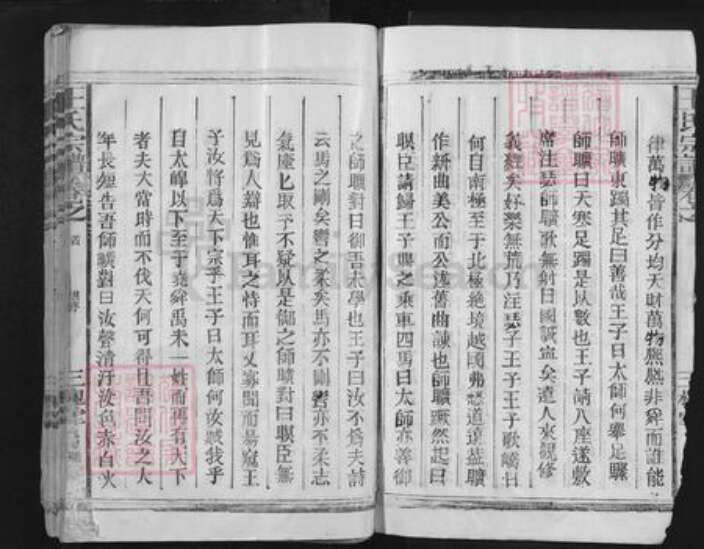 律萬物皆作分均天財萬物熙熙非舜而誰能
師曠東躅其足曰善哉王子曰太師何舉足驟
師曠曰天寒足躅是以數也王子請入座遂敷
席注瑟師曠歌無射曰國誠寧矣遠人來觀修
義經矣好樂無荒乃注瑟于王子王子歌嶠曰
何自南極至于北極絶境越國弗愁道遠師曠
作新曲美公而公述舊曲諫也師曠蹶然起曰
瞑臣請歸王子賜之乘車四馬曰太師亦善御
之師曠對曰御吾未學也王子曰汝不為夫詩
云馬之剛矣轡之柔矣馬亦不剛轡亦不柔志
氣麃匕取予不疑以是御之師曠對曰瞑臣無
見為人辯也惟耳之恃而耳又寡聞而易窮王
子汝將為天下宗乎王子曰太師何汝戲我乎
自太皞以下至于堯舜禹未一姓而再有天下
者夫大當時而不伐天何可得且吾聞汝之人
年長短告吾師曠對曰汝聲清汙汝色赤白火
王氏宗譜
卷之
三槐堂